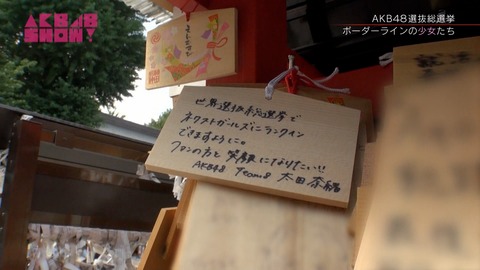 AKB48
SHOW!
AKB48選抜総選挙
ボーダーラインの少女たち
世界選抜総選挙で
ネクストガールズにランクイン
できますように。
ファンの方と笑顔になりたい!!
AKB48 Team8 太田奈緒